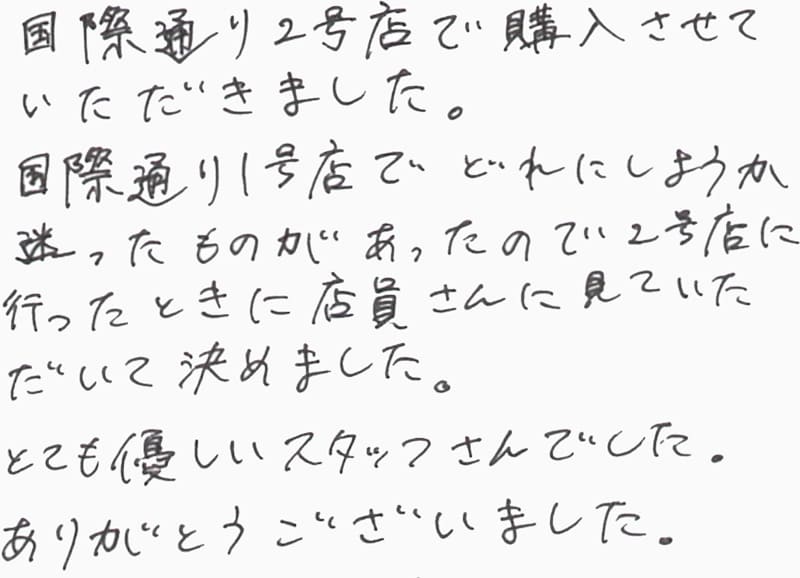 国際通り2号店で購入させて
いただきました。
国際通り1号店でどれにしようか
迷ったものがあったので2号店に
行ったときに店員さんに見ていた
だいて決めました。
とても優しいスタッフさんでした.
ありがとうございました.